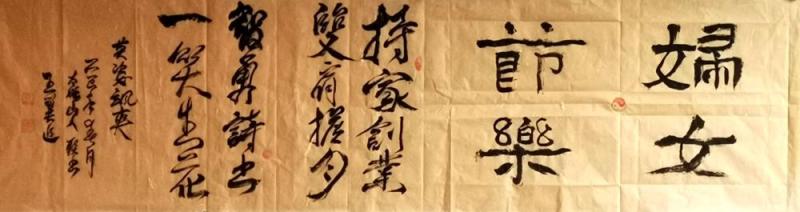 婦女
節樂
持家創業
雙肩擔月
智勇詩書
一笑生花
英姿颯爽